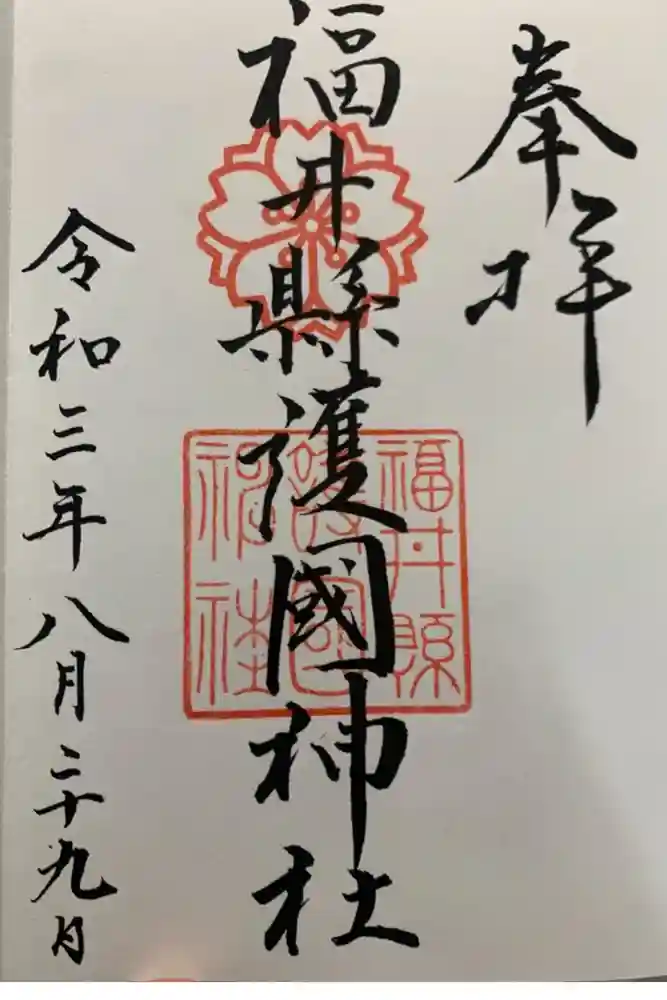 奉拝
福井縣護國神社
福井縣
護國
神社
令和三年八月二十九日